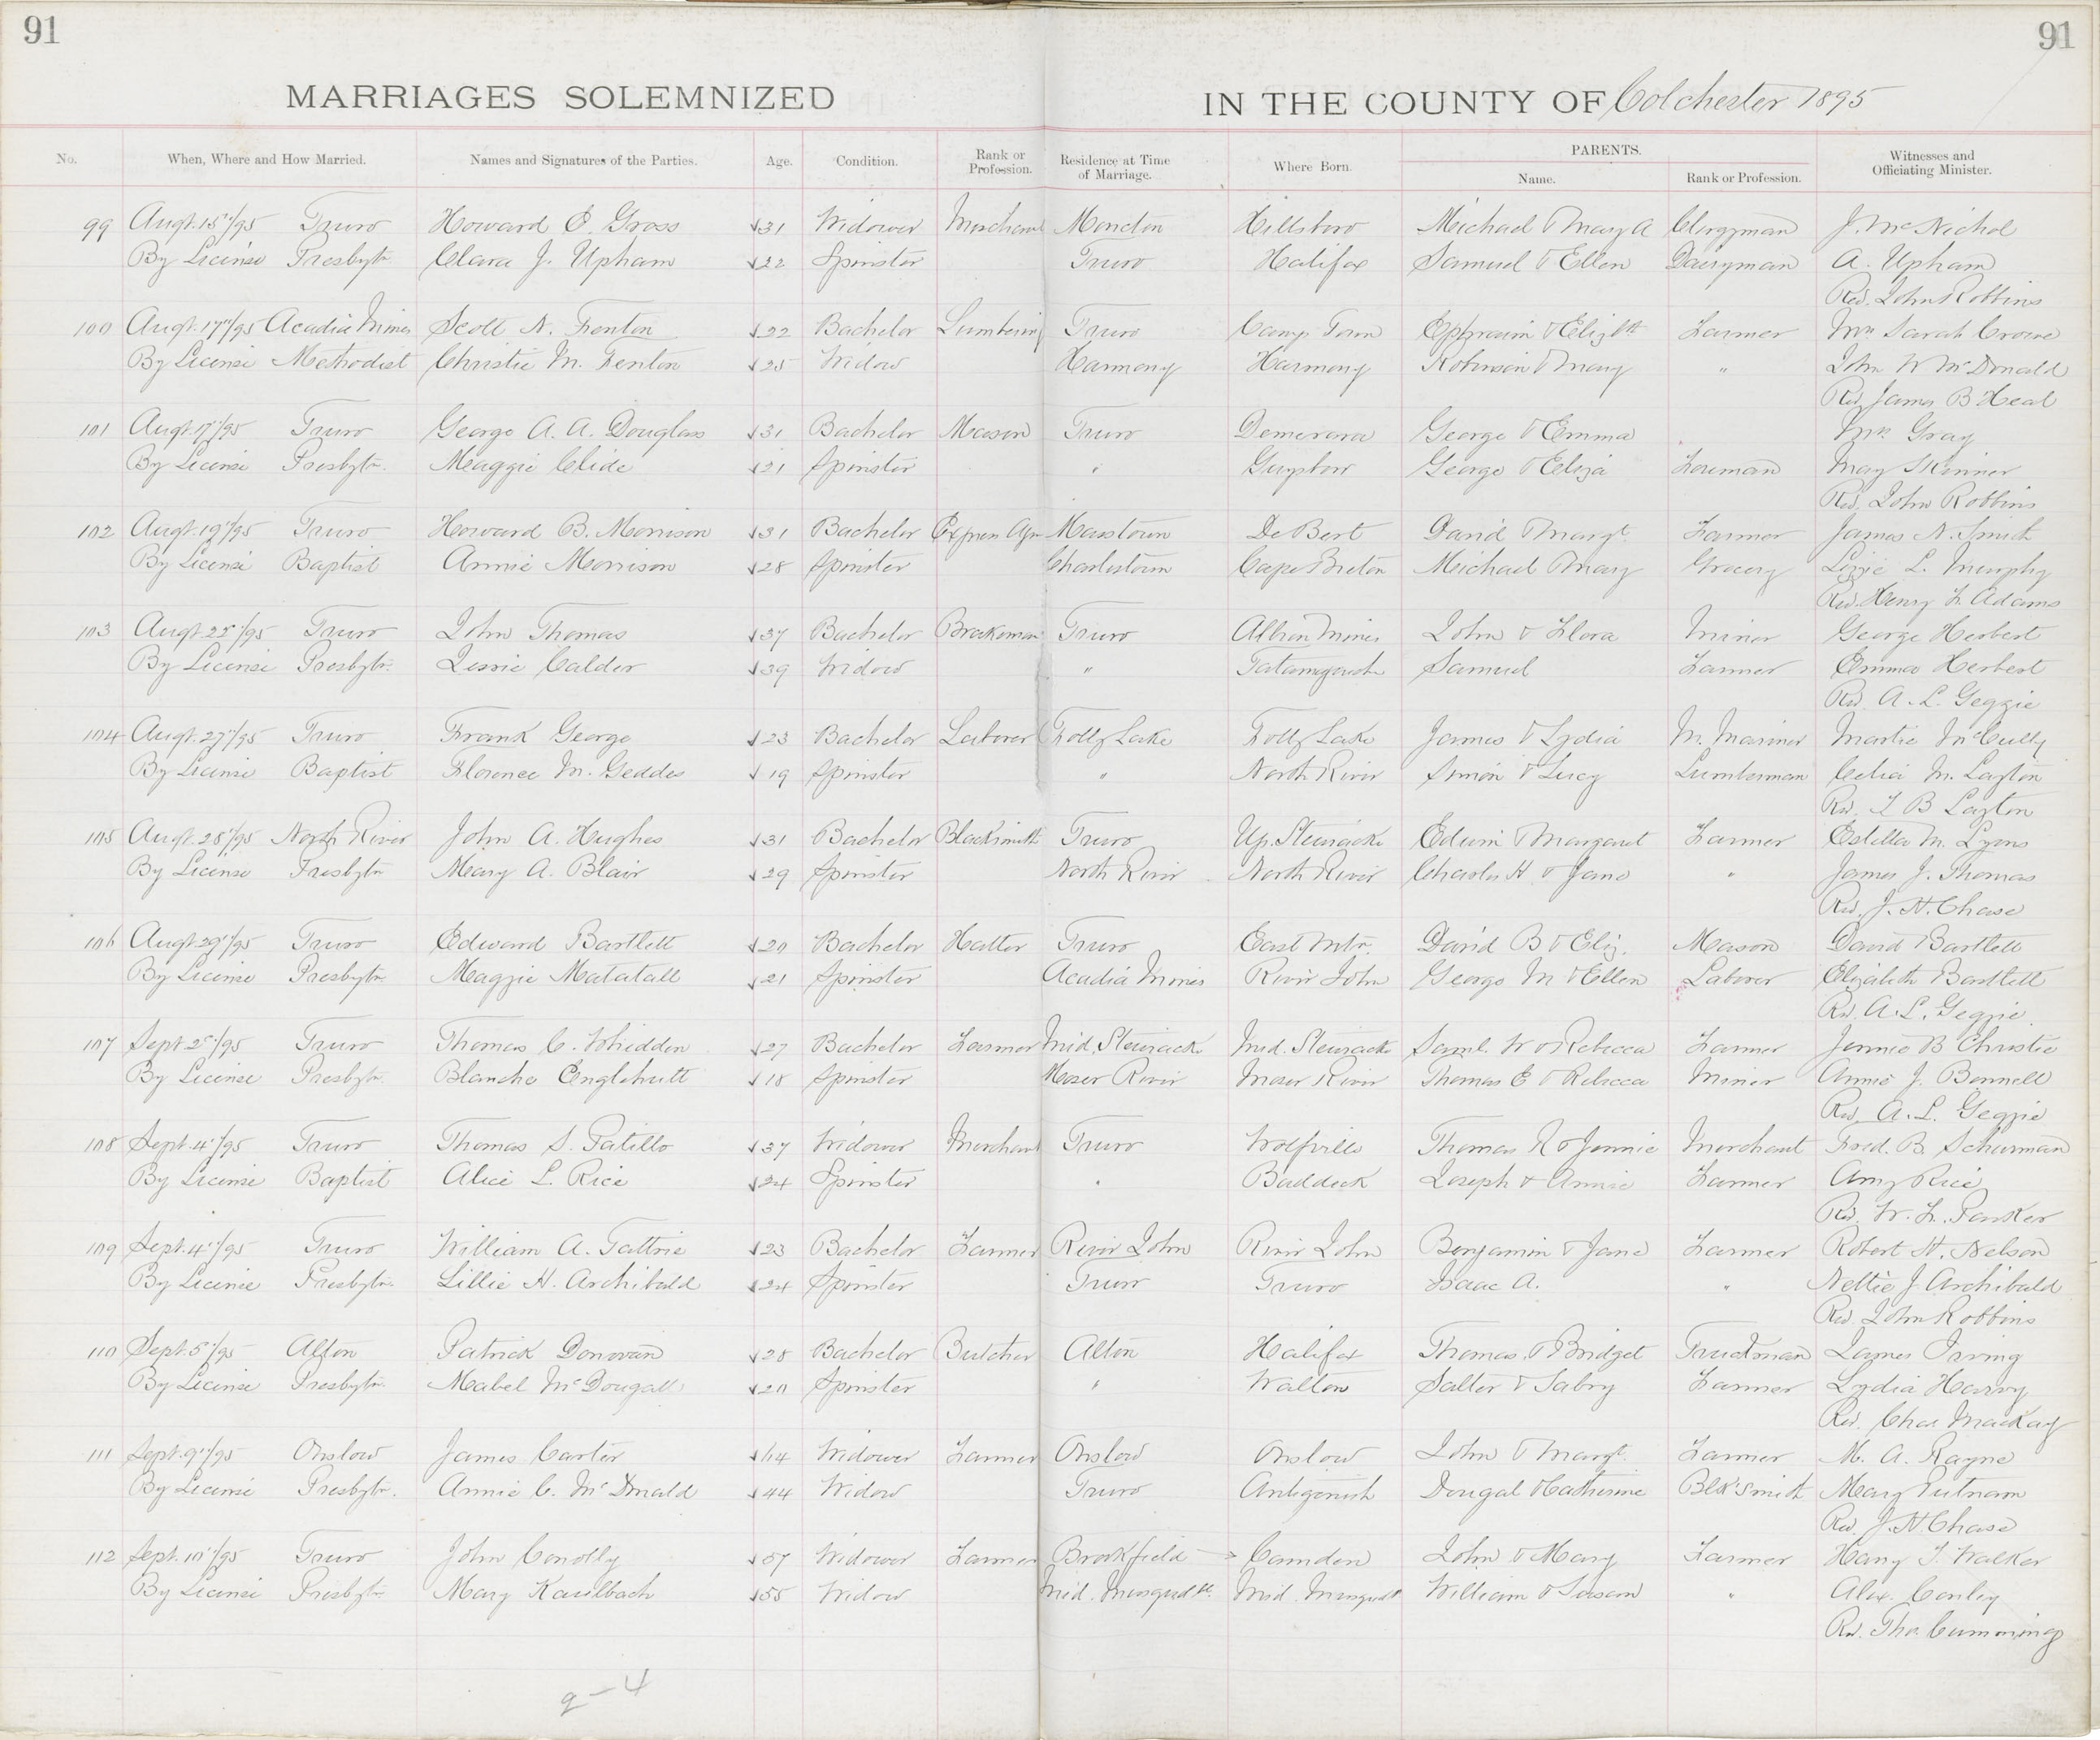 91
91
MARRIAGES SOLEMNIZED
IN THE COUNTY OF Colchester 1895
No. When, Where and How Married. Names and Signatures of the Parties. Age. Condition. Rank or Profession. Residence at Time of Marriage. Where Born. PARENTS. Name. Rank or Profession. Witnesses and Officiating Minister.
99 Augt. 15"/95 Truro Howard E. Gross 31 Widower Merchant Moncton Hillsboro Michael & Mary A Clergyman J. McNichol
By License Presbytn Clara J. Upham 22 Spinster Truro Halifax Samuel & Ellen Dairyman A. Upham
Rev. John Robbins
100 Augt. 17"/95 Acadia Mines Scott N. Fenton 22 Bachelor Lumbering Truro Camp Town Ephraim & Elizbth Farmer Mrs Sarah Crowe
By License Methodist Christie M. Fenton 25 Widow Harmony Harmony Robinson & Mary " John W McDonald
Rev. James B Heal
101 Augt. 17"/95 Truro George A. A. Douglass 31 Bachelor Mason Truro Demerara George & Emma Mrs. Gray
By License Presbytn. Maggie Clide 21 Spinster " Guysboro George & Eliza May Skinner
Rev. John Robbins
102 Augt. 19"/95 Truro Howard B. Morrison 31 Bachelor Express Agn Masstown De Bert David & Margt. Farmer James N. Smith
By License Baptist Annie Morrison 28 Spinster Charlestown Cape Breton Michael & Mary Grocery Lizzie L. Murphy
Rev. Henry F. Adams
103 Augt. 22"/95 Truro John Thomas 37 Bachelor Brakeman Truro Albion Mines John & Flora Miner George Herbert
By License Presbytn. Jessie Calder 39 Widow " Tatamagouche Samuel Farmer Emma Herbert
Rev. A. L. Geggie
104 Augt. 27"/95 Truro Frank George 23 Bachelor Laborer Folly Lake Folly Lake James & Lydia M. Mariner McCully
By License Baptist Florence M. Geddes 19 Spinster " North River Simon & Lucy Lumberman Celia M. Layton
Rev. T B Layton
105 Augt. 28"/95 North River John A. Hughes 31 Bachelor Blacksmith Truro Up. Stewiacke Edwin & Margaret Farmer Estella M. Lyons
By License Presbytn Mary A. Blair 29 Spinster North River North River Charles H. & Jane " James J. Thomas
Rev. J. H. Chase
106 Augt. 29"/95 Truro Edward Bartlett 20 Bachelor Hatter Truro East Mtn. David B & Eliz. Mason David Bartlett
By License Presbytn. Maggie Matatall 21 Spinster Acadia Mines River John George M & Ellen Laborer Elizabeth Bartlett
Rev. A. L. Geggie
107 Sept 2"/95 Truro Thomas C. Whidden 27 Bachelor Farmer Mid. Stewiacke Mid. Stewiacke Saml. W & Rebecca Farmer Jennie B Christie
By License Presbytn Blanche Englehutt 18 Spinster Moser River Moser River Thomas E & Rebecca Miner Annie J. Bonnell
Rev. A. L. Geggie
108 Sept. 4"/95 Truro Thomas S. Patillo 37 Widower Merchant Truro Wolfville Thomas R & Jennie Merchant Fred. B. Schurman
By License Baptist Alice L. Rice 24 Spinster " Baddeck Joseph & Annie Farmer Amy Rice
Rev. W. F. Parker
109 Sept. 4"/95 Truro William A. Tattrie 23 Bachelor Farmer River John River John Benjamin & Jane Farmer Robert H. Nelson
By License Presbytn. Lillie H. Archibald 24 Spinster Truro Truro Isaac A. " Nettie J. Archibald
Rev. John Robbins
110 Sept. 5"/95 Alton Patrick Donovan 28 Bachelor Butcher Alton Halifax Thomas & Bridget Truckman James Irving
By License Presbytn. Mabel McDougall 20 Spinster " Walton Salter & Sabry Farmer Lydia Harvy
Rev. Chas MacKay
111 Sept. 9"/95 Onslow James Carter 64 Widower Farmer Onslow Onslow John & Margt. Farmer M. A. Rayne
By License Presbytn. Annie C. McDonald 44 Widow Truro Antigonish Dougal & Catherine Blk'smith Mary Putnam
Rev. J. H Chase
112 Sept. 10"/95 Truro John Conolly 57 Widower Farmer Brookfield Camden John & Mary Farmer Harry T. Walker
By License Presbytn. Mary Kaulbach 55 Widow Mid. Musqudt. Mid. Musqudt William & Susan " Alex. Conley
Rev. Thos. Cumming
2-4